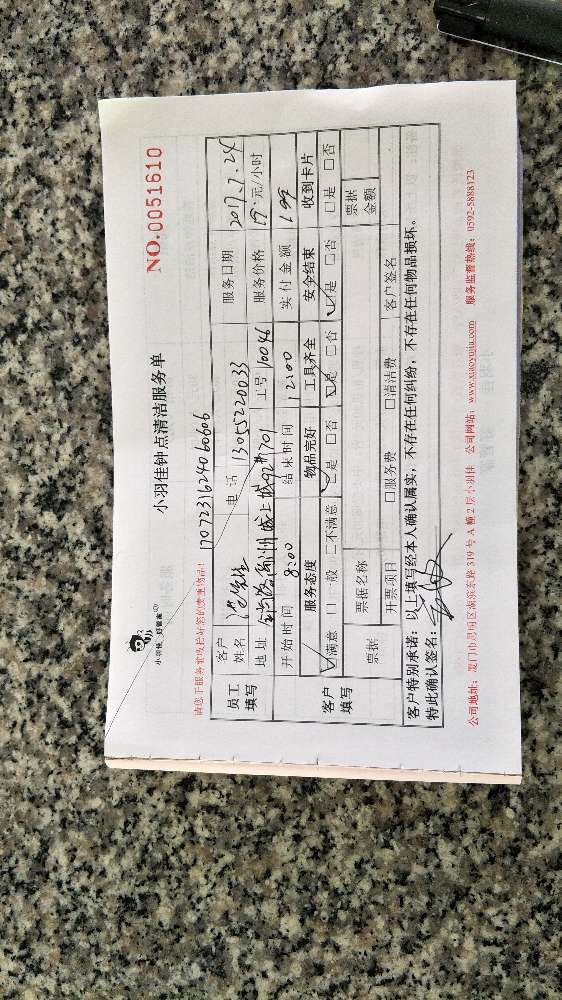 小羽佳 好管家
小羽佳钟点清洁服务单
NO.0051610
请您于服务前收拾好您的贵重物品!
1707231624060606
员工填写
客户姓名 先生 电话 13055220033 服务日期 2017.7.24
地址 701 工号 10046 服务价格 元/小时
开始时间 8:00 结束时间 12:00 实付金额
客户填写
服务态度 物品完好 工具齐全 安全结束 收到卡片
☑满意 □一般 □不满意 ☑是 □否 ☑是 □否 ☑是 □否 □是 □否
票据 票据名称 票据金额
开票项目 □服务费 □清洁费 客户签名
客户特别承诺：以上填写经本人确认属实，不存在任何纠纷，不存在任何物品损坏。
特此确认签名：
公司地址：厦门市思明区湖滨东路319号A幢2层小羽佳 公司网站：www.xiaoyujia.com 服务监督热线：0592-5888123